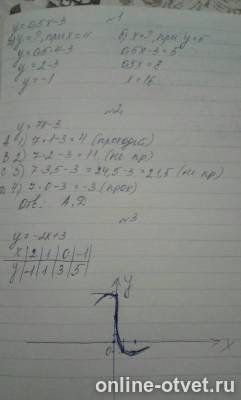 №1
y=0,5x-3
а) y=?, при x=4 б) x=?, при y=5
y=0,5·4-3 0,5x-3=5
y=2-3 0,5x=8
y=-1 x=16
№2
y=7x-3
A 1) 7·1-3=4 (проходит)
B 2) 7·2-3=11 (не пр)
C 3) 7·3,5-3=24,5-3=21,5 (не пр)
D 4) 7·0-3=-3 (прох)
Отв: А, Д
№3
y=-2x+3
x | 2 | 1 | 0 | -1
y | -1 | 1 | 3 | 5
y
0
x
online-otvet.ru